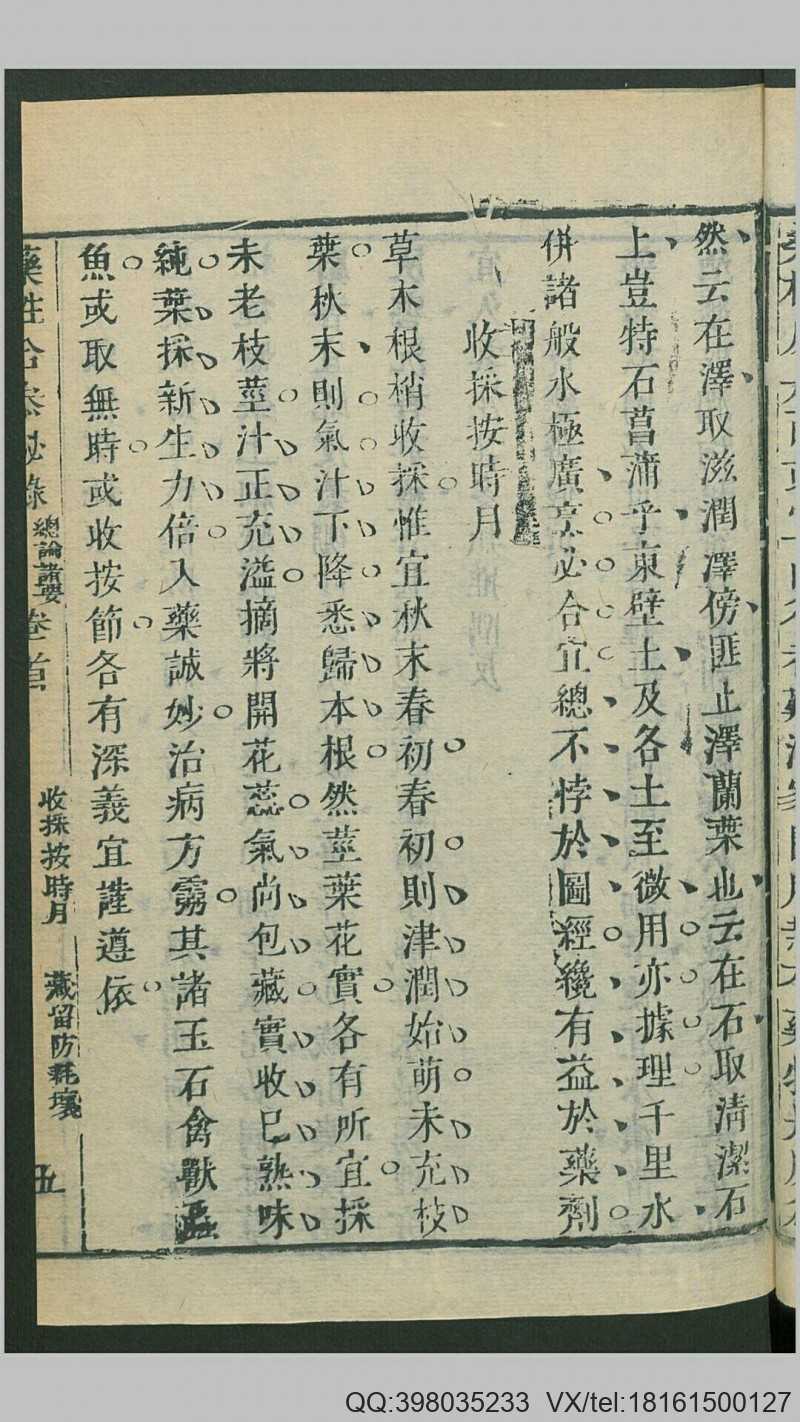 然云在澤取滋潤澤傍匪止澤蘭葉也云在石取清潔石
上豈特石菖蒲乎東壁土及各土至微用亦據理千里水
併諸般水極廣烹必合宜總不悖於圖經纔有益於藥劑
收採按時月
草木根梢收採惟宜秋末春初春初則津潤始萌未充枝
葉秋末則氣汁下降悉歸本根然莖葉花實各有所宜採
未老枝莖汁正充溢摘將開花蕊氣尚包藏實收已熟味
純葉採新生力倍入藥誠妙治病方霛其諸玉石禽獸
魚或取無時或收按節各有深義宜謹遵依
藥性合參秘錄 總論諸要 卷首 收採按時月 藏留防耗壞 五
QQ:398035233 VX/tel:18161500127